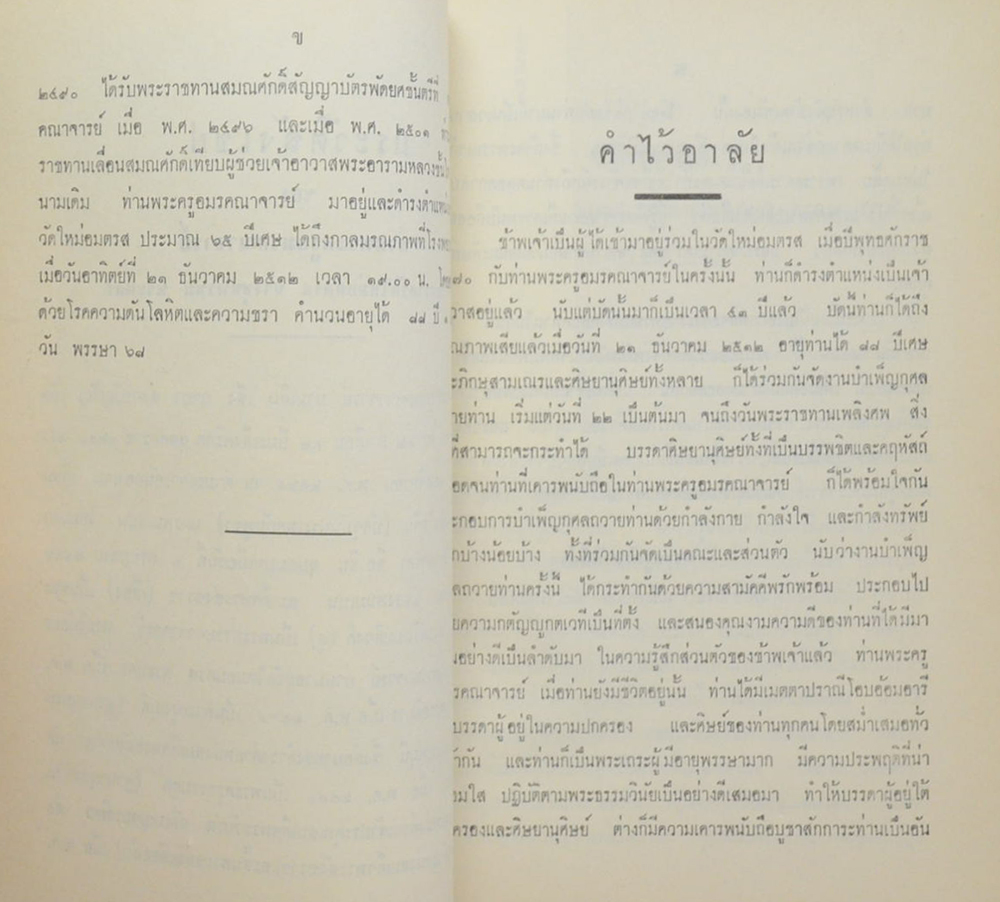 ข
๒๔๙๐ ได้รับพระราชทานสมณศักดิ์สัญญาบัตรพัดยศชั้นตรีที่
คณาจารย์ เมื่อ พ.ศ. ๒๔๙๖ และเมื่อ พ.ศ. ๒๕๐๑
ราชทานเลื่อนสมณศักดิ์เทียบผู้ช่วยเจ้าอาวาสพระอารามหลวงชั้น
นามเดิม ท่านพระครูอมรคณาจารย์ มาอยู่และดำรงตำแหน่ง
วัดใหม่อมตรส ประมาณ ๖๕ ปีเศษ ได้ถึงกาลมรณภาพที่โรงพ
เมื่อวันอาทิตย์ที่ ๒๑ ธันวาคม ๒๕๑๒ เวลา ๑๙.๐๐ น. โดย
ด้วยโรคความดันโลหิตและความชรา คำนวนอายุได้ ๘๘ ปี
วัน พรรษา ๖๘
คำไว้อาลัย
ข้าพเจ้าเป็นผู้ได้เข้ามาอยู่ร่วมในวัดใหม่อมตรส เมื่อปีพุทธศักราช
๗๐ กับท่านพระครูอมรคณาจารย์ในครั้งนั้น ท่านก็ดำรงตำแหน่งเป็นเจ้า
วาสอยู่แล้ว นับแต่บัดนั้นมาก็เป็นเวลา ๔๓ ปีแล้ว บัดนี้ท่านก็ได้ถึง
ณภาพเสียแล้วเมื่อวันที่ ๒๑ ธันวาคม ๒๕๑๒ อายุท่านได้ ๘๘ ปีเศษ
ะภิกษุสามเณรและศิษยานุศิษย์ทั้งหลาย ก็ได้ร่วมกันจัดงานบำเพ็ญกุศล
ายท่าน เริ่มแต่วันที่ ๒๒ เป็นต้นมา จนถึงวันพระราชทานเพลิงศพ สิ่ง
ที่สามารถจะกระทำได้ บรรดาศิษยานุศิษย์ทั้งที่เป็นบรรพชิตและคฤหัสถ์
อดจนท่านที่เคารพนับถือในท่านพระครูอมรคณาจารย์ ก็ได้พร้อมใจกัน
ะกอบการบำเพ็ญกุศลถวายท่านด้วยกำลังกาย กำลังใจ และกำลังทรัพย์
กบ้างน้อยบ้าง ทั้งที่ร่วมกันจัดเป็นคณะและส่วนตัว นับว่างานบำเพ็ญ
ลถวายท่านครั้งนี้ ได้กระทำกันด้วยความสามัคคีพรักพร้อม ประกอบไป
ยความกตัญญูกตเวทีเป็นที่ตั้ง และสนองคุณงามความดีของท่านที่ได้มีมา
นอย่างดีเป็นลำดับมา ในความรู้สึกส่วนตัวของข้าพเจ้าแล้ว ท่านพระครู
รคณาจารย์ เมื่อท่านยังมีชีวิตอยู่นั้น ท่านได้มีเมตตาปราณีโอบอ้อมอารี
บรรดาผู้อยู่ในความปกครอง และศิษย์ของท่านทุกคนโดยสม่ำเสมอทั่ว
ากัน และท่านก็เป็นพระเถระผู้มีอายุพรรษามาก มีความประพฤติที่น่า
อมใส ปฏิบัติตามพระธรรมวินัยเป็นอย่างดีเสมอมา ทำให้บรรดาผู้อยู่ใต้
ครองและศิษยานุศิษย์ ต่างก็มีความเคารพนับถือบูชาสักการะท่านเป็นอัน